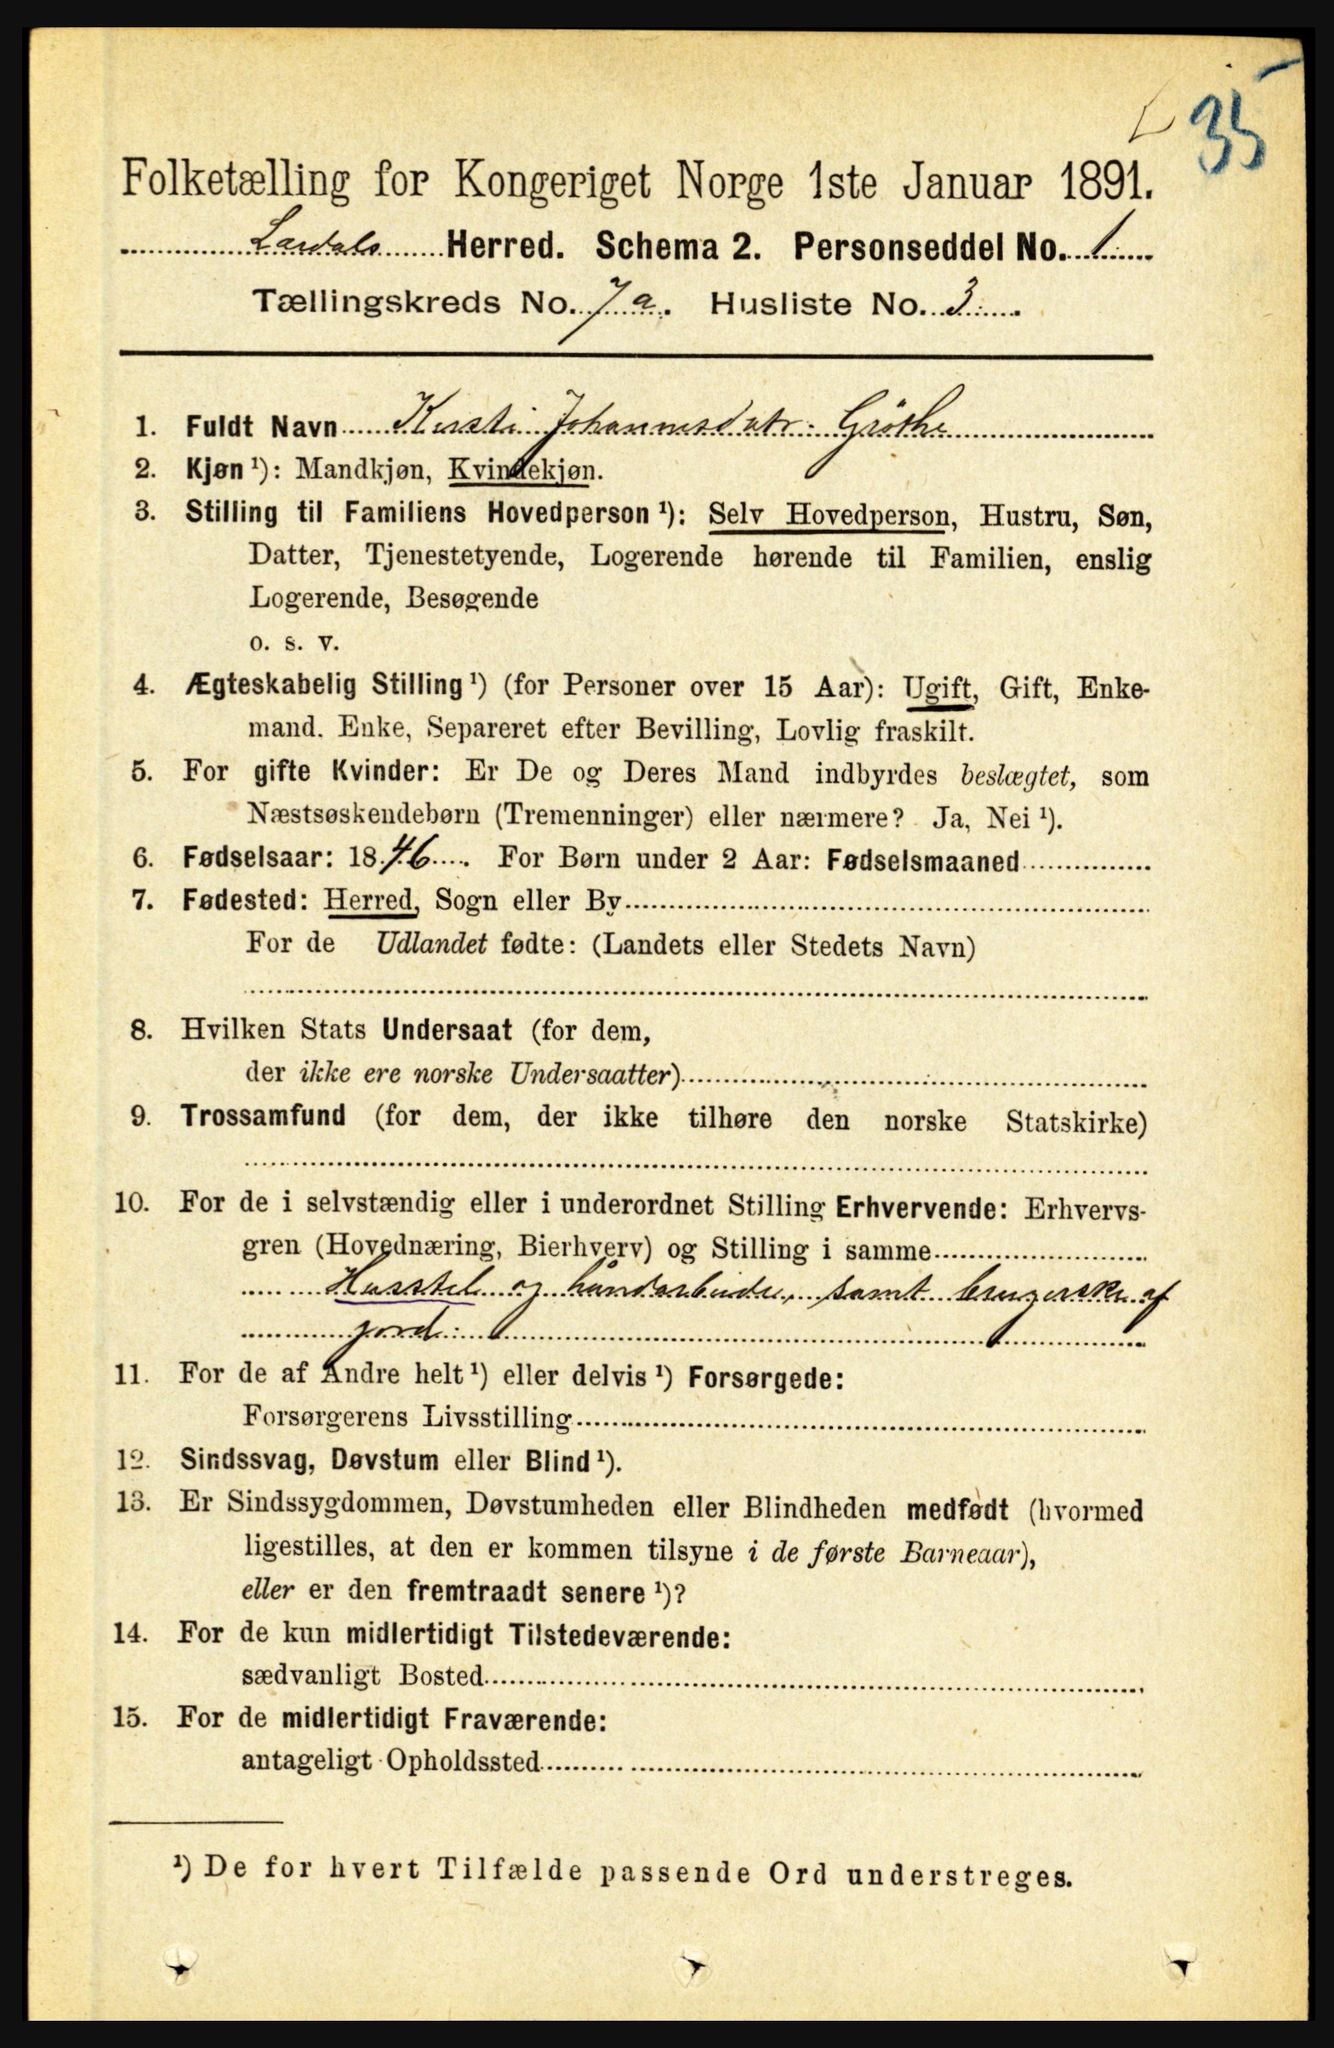 35
Folketælling for Kongeriget Norge 1ste Januar 1891.
Lærdals Herred. Schema 2. Personseddel No. 1
Tællingskreds No. 7 a. Husliste No. 3
1. Fuldt Navn Kirsti Johannesdatr. Gröthe
2. Kjøn ¹): Mandkjøn, Kvindekjøn.
3. Stilling til Familiens Hovedperson ¹): Selv Hovedperson, Hustru, Søn,
Datter, Tjenestetyende, Logerende hørende til Familien, enslig
Logerende, Besøgende
o. s. v.
4. Ægteskabelig Stilling ¹) (for Personer over 15 Aar): Ugift, Gift, Enke-
mand. Enke, Separeret efter Bevilling, Lovlig fraskilt.
5. For gifte Kvinder: Er De og Deres Mand indbyrdes beslægtet, som
Næstsøskendebørn (Tremenninger) eller nærmere? Ja, Nei ¹).
6. Fødselsaar: 1846. For Børn under 2 Aar: Fødselsmaaned
7. Fødested: Herred, Sogn eller By
For de Udlandet fødte: (Landets eller Stedets Navn)
8. Hvilken Stats Undersaat (for dem,
der ikke ere norske Undersaatter)
9. Trossamfund (for dem, der ikke tilhøre den norske Statskirke)
10. For de i selvstændig eller i underordnet Stilling Erhvervende: Erhvervs-
gren (Hovednæring, Bierhverv) og Stilling i samme
Husstel og håndarbeide, samt brugerske af
jord.
11. For de af Andre helt ¹) eller delvis ¹) Forsørgede:
Forsørgerens Livsstilling
12. Sindssvag, Døvstum eller Blind ¹).
13. Er Sindssygdommen, Døvstumheden eller Blindheden medfødt (hvormed
ligestilles, at den er kommen tilsyne i de første Barneaar),
eller er den fremtraadt senere ¹)?
14. For de kun midlertidigt Tilstedeværende:
sædvanligt Bosted
15. For de midlertidigt Fraværende:
antageligt Opholdssted
¹) De for hvert Tilfælde passende Ord understreges.